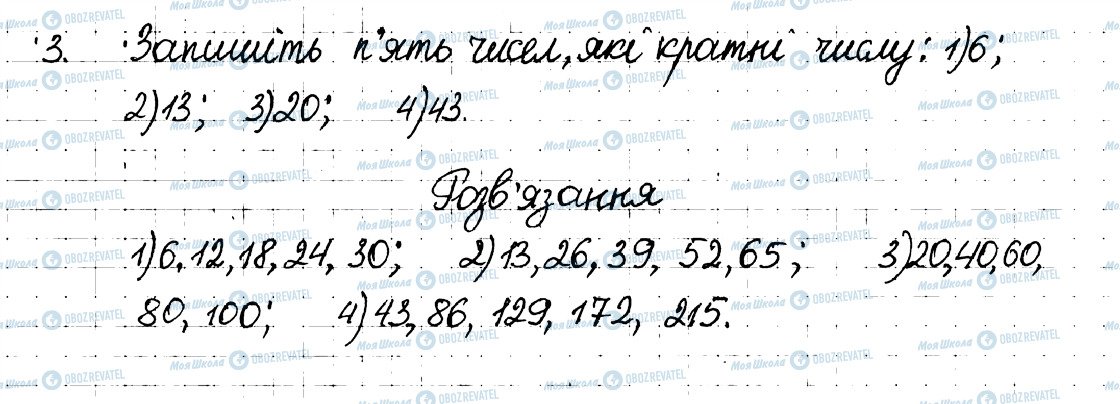 3. Запишіть п'ять чисел, які кратні числу: 1) 6;
2) 13; 3) 20; 4) 43.
Розв'язання
1) 6, 12, 18, 24, 30; 2) 13, 26, 39, 52, 65; 3) 20, 40, 60,
80, 100; 4) 43, 86, 129, 172, 215.
Моя Школа OBOZREVATEL